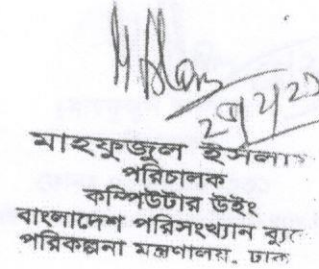 মাহফুজুল ইসলাম
পরিচালক
কম্পিউটার উইং
বাংলাদেশ পরিসংখ্যান ব্যুরো
পরিকল্পনা মন্ত্রণালয়, ঢাকা